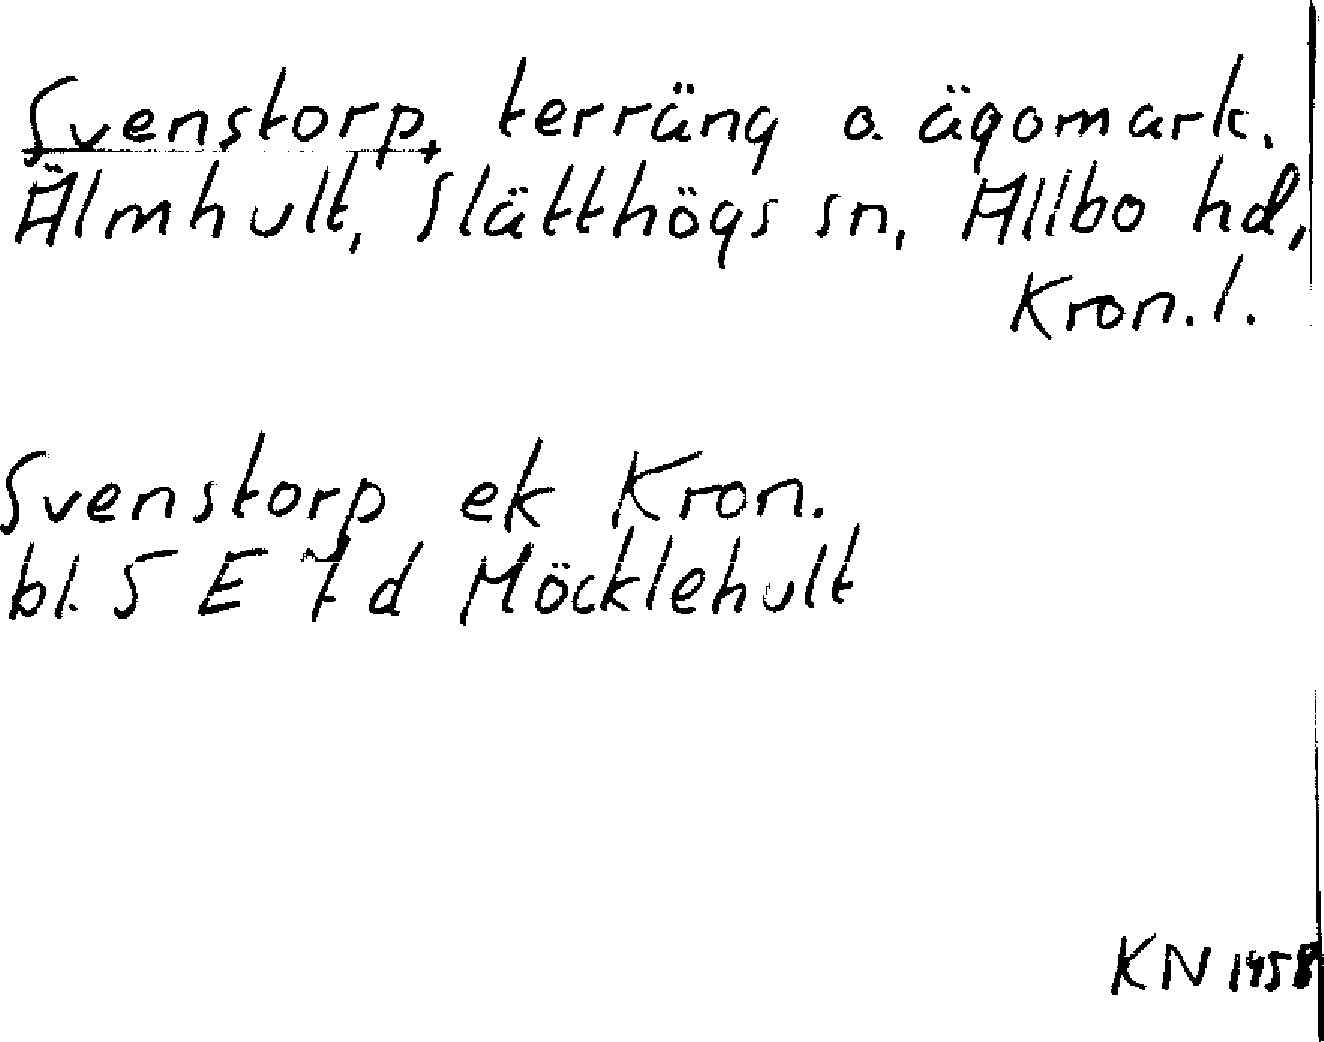 Svenstorp, terräng o. ägomark.
Älmhult, Slätthögs sn, Allbo hd,
Kron. l.
Svenstorp ek Kron.
bl. 5 E 7 d Möcklehult
KN 1958